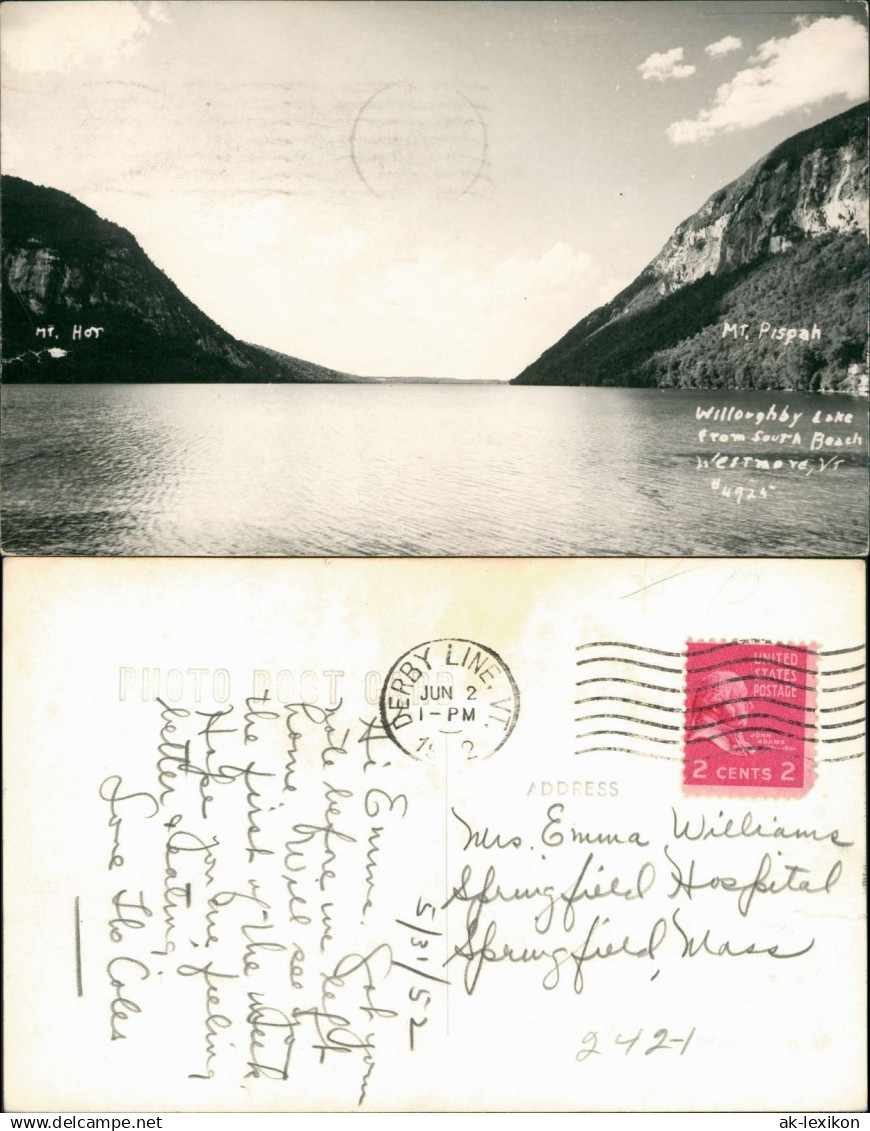 Mt. Hor
Mt. Pispah
Willoughby Lake
From South Beach
Westmore, Vt
#4925
PHOTO POST CARD
DERBY LINE, VT.
JUN 2
1-PM
UNITED
STATES
POSTAGE
JOHN
ADAMS
2 CENTS 2
ADDRESS
5/31/52
Hi Emma. Got your
note before we left
home Will see you
the first of the week
Hope you are feeling
better & eating.
Love The Coles
Mrs. Emma Williams
Springfield Hospital
Springfield, Mass
2421
Delcampe.net
ak-lexikon